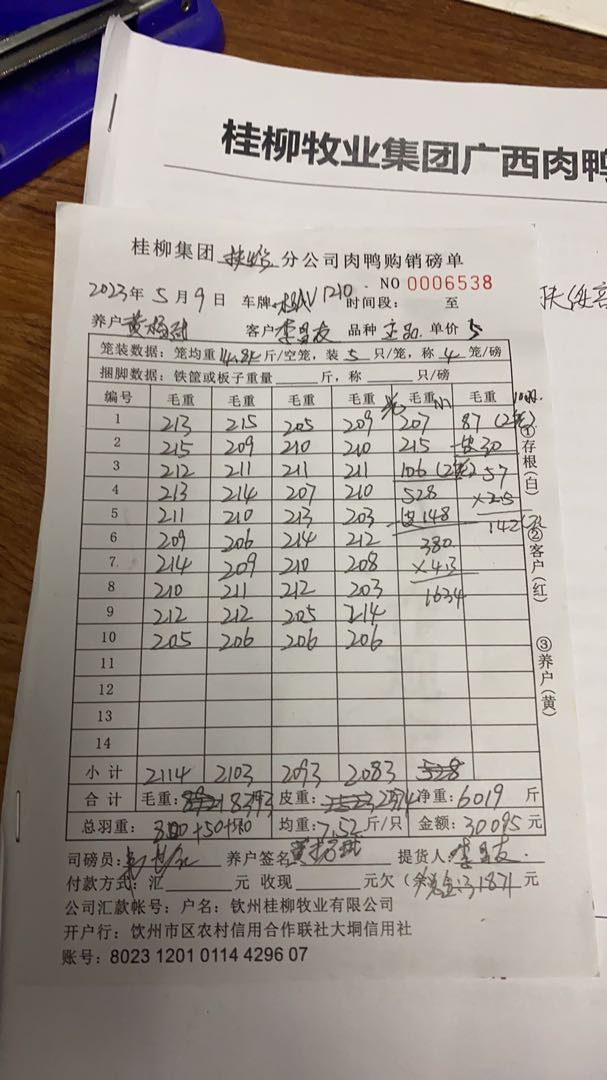 桂柳牧业集团广西肉鸭
桂柳集团 分公司肉鸭购销磅单
NO 0006538
2023年 5月 9日 车牌 1210 时间段: 至
养户 客户 品种 单价 5
笼装数据: 笼均重 斤/空笼, 装 5 只/笼, 称 4 笼/磅
捆脚数据: 铁筐或板子重量 斤, 称 只/磅
编号 毛重 毛重 毛重 毛重 毛重 毛重
1 213 215 205 209 207 87
2 215 209 210 210 215 皮30
3 212 211 211 211 106 57
4 213 214 207 210 528 ×2.5
5 211 210 213 203 皮148 142
6 209 206 214 212 380
7 214 209 210 208 ×4.3
8 210 211 212 203 1634
9 212 212 205 214
10 205 206 206 206
11
12
13
14
小计 2114 2103 2093 2083 528
合计 毛重: 8393 皮重: 2374 净重: 6019 斤
总羽重: 均重: 7.52 斤/只 金额: 30095 元
司磅员: 养户签名 提货人:
付款方式: 汇 元 收现 元欠 ( 31871 元
公司汇款帐号: 户名: 钦州桂柳牧业有限公司
开户行: 钦州市区农村信用合作联社大垌信用社
账号: 8023 1201 0114 4296 07
①存根(白)
②客户(红)
③养户(黄)